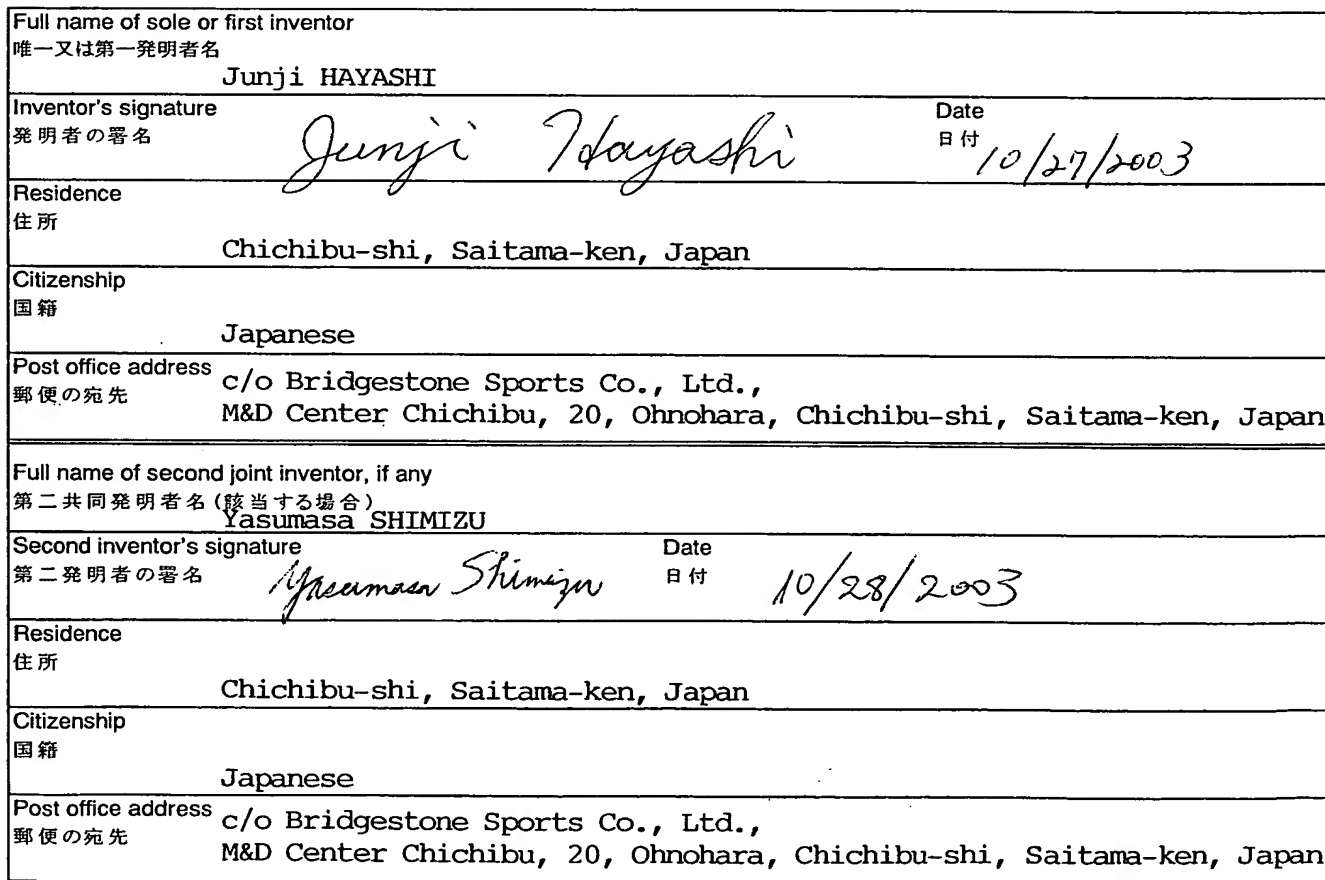 Full name of sole or first inventor
唯一又は第一発明者名
Junji HAYASHI
Inventor's signature
発明者の署名
Junji Hayashi
Date
日付 10/27/2003
Residence
住所
Chichibu-shi, Saitama-ken, Japan
Citizenship
国籍
Japanese
Post office address
郵便の宛先
c/o Bridgestone Sports Co., Ltd.,
M&D Center Chichibu, 20, Ohnohara, Chichibu-shi, Saitama-ken, Japan
Full name of second joint inventor, if any
第二共同発明者名(該当する場合)
Yasumasa SHIMIZU
Second inventor's signature
第二発明者の署名
Yasumasa Shimizu
Date
日付 10/28/2003
Residence
住所
Chichibu-shi, Saitama-ken, Japan
Citizenship
国籍
Japanese
Post office address
郵便の宛先
c/o Bridgestone Sports Co., Ltd.,
M&D Center Chichibu, 20, Ohnohara, Chichibu-shi, Saitama-ken, Japan